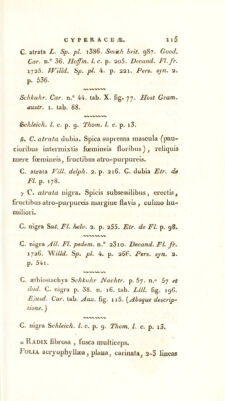 CYPERACEÆ. 115
C. atrata L. Sp. pl. 1386. Smith brit. 987. Good.
Car. n.º 36. Hoffm. l. c. p. 205. Decand. Fl. fr.
1725. Willd. Sp. pl. 4. p. 221. Pers. syn. 2.
p. 536.
Schkuhr. Car. n.º 44. tab. X. fig. 77. Host Gram.
austr. 1. tab. 88.
Schleich. l. c. p. 9. Thom. l. c. p. 13.
β. C. atrata dubia. Spica suprema mascula (pau-
cioribus intermixtis fœmineis floribus), reliquis
mere fœmineis, fructibus atro-purpureis.
C. atrata Vill. delph. 2. p. 216. C. dubia Etr. de
Fl. p. 178.
γ C. atrata nigra. Spicis subsessilibus, erectis,
fructibus atro-purpureis margine flavis, culmo hu-
miliori.
C. nigra Sut. Fl. helv. 2. p. 255. Etr. de Fl. p. 98.
C. nigra All. Fl. pedem. n.º 2310. Decand. Fl. fr.
1726. Willd. Sp. pl. 4. p. 266. Pers. syn. 2.
p. 541.
C. æthiostachys Schkuhr Nachtr. p. 57. n.º 57 et
ibid. C. nigra p. 38. n. 16. tab. Lill. fig. 196.
Ejusd. Car. tab. Aaa. fig. 115. (Absque descrip-
tione.)
C. nigra Schleich. l. c. p. 9. Thom. l. c. p. 13.
α RADIX fibrosa, fusca multiceps.
FOLIA acryophyllæa, plana, carinata, 2-3 lineas